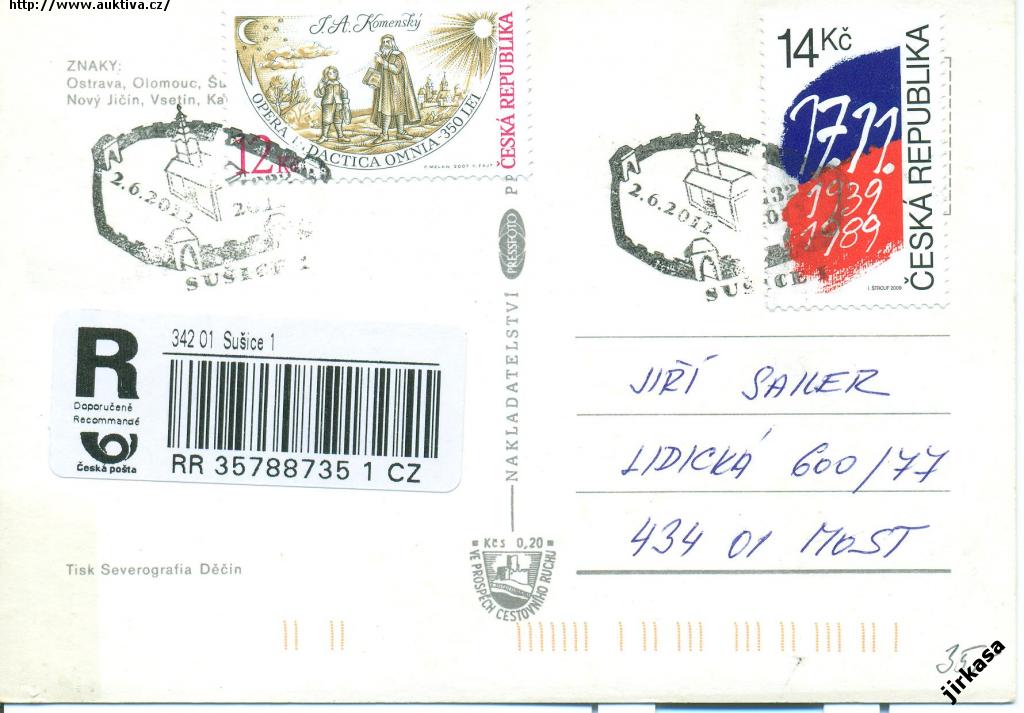 http://www.auktiva.cz/
ZNAKY:
Ostrava, Olomouc,
Nový Jičín, Vsetín,
J. A. Komenský
OPERA DIDACTICA OMNIA - 350 LET
12 Kč
ČESKÁ REPUBLIKA
2.6.2012
SUŠICE 1
14 Kč
17.11.
1939
1989
ČESKÁ REPUBLIKA
I. ŠTROUF 2009
2.6.2012
SUŠICE 1
PRESSFOTO
NAKLADATELSTVÍ
R
Doporučeně
Recommandé
Česká pošta
342 01 Sušice 1
RR 35788735 1 CZ
JIŘÍ SAILER
LIDICKÁ 600/77
434 01 MOST
Kčs 0,20
VE PROSPĚCH CESTOVNÍHO RUCHU
Tisk Severografia Děčín
35
jirkasa